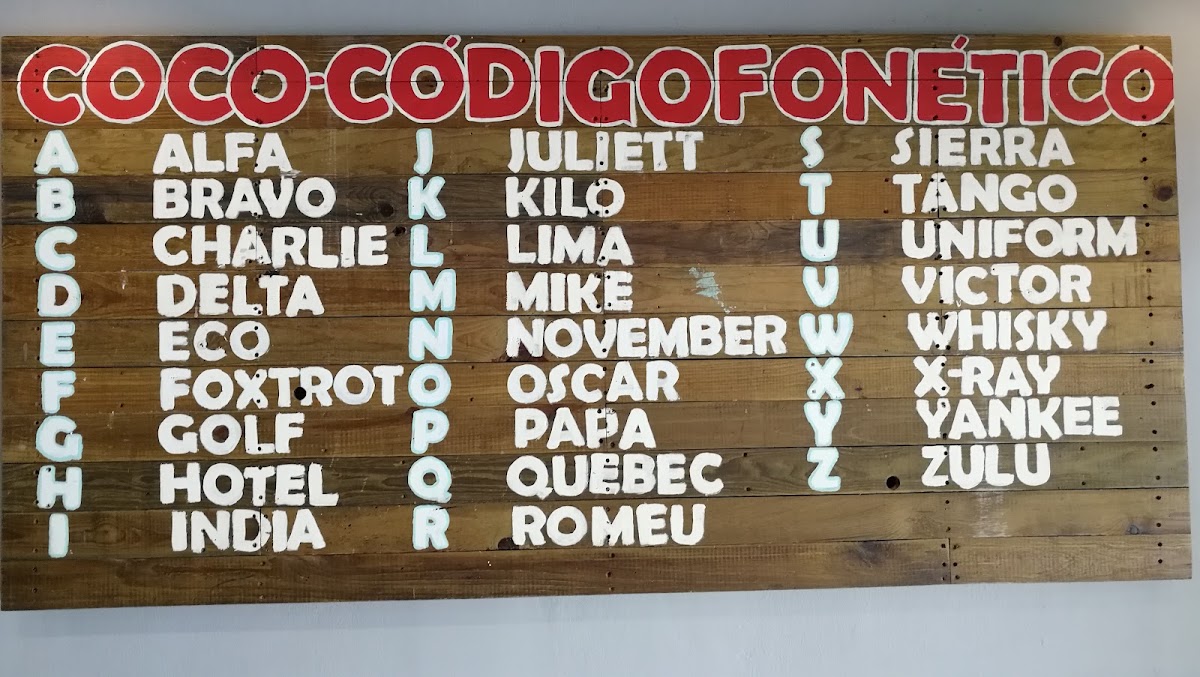 COCO-CÓDIGOFONÉTICO
A ALFA
B BRAVO
C CHARLIE
D DELTA
E ECO
F FOXTROT
G GOLF
H HOTEL
I INDIA
J JULIETT
K KILO
L LIMA
M MIKE
N NOVEMBER
O OSCAR
P PAPA
Q QUEBEC
R ROMEU
S SIERRA
T TANGO
U UNIFORM
V VICTOR
W WHISKY
X X-RAY
Y YANKEE
Z ZULU